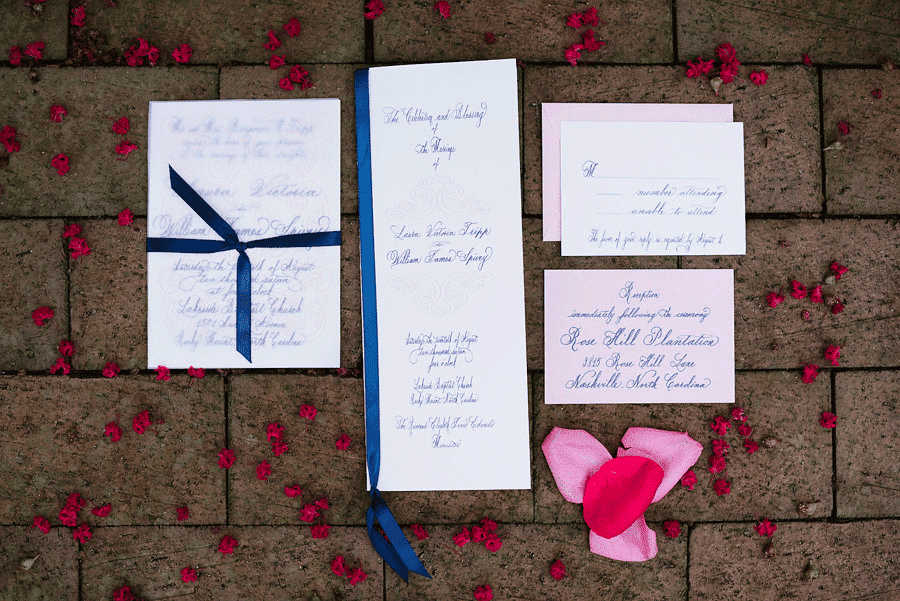 Mr. and Mrs. Benjamin F. Tripp
request the honor of your presence
at the marriage of their daughter
Laura Victoria
William James Spivey
Saturday the twentieth of August
two thousand sixteen
at five o'clock
Lakeside Baptist Church
1501 Avenue
Rocky Mount North Carolina
The Celebration and Blessing
of
the Marriage
of
Laura Victoria Tripp
William James Spivey
Saturday the twentieth of August
two thousand sixteen
five o'clock
Lakeside Baptist Church
Rocky Mount North Carolina
The Reverend Elizabeth Edwards
Minister
M
number attending
unable to attend
The favor of your reply is requested by August 1
Reception
immediately following the ceremony
Rose Hill Plantation
Rose Hill Lane
Nashville, North Carolina